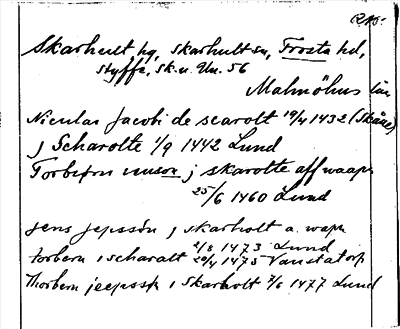 RAP.
Skarhult hg, skarhult sn, Frosta hd,
styffe, sk. u. Un. 56
Malmöhus län
Niculas Jacobi de scarolt 19/4 1432 (Skåne)
j Scharolte 1/9 1442 Lund
Torbiørn unson j skarolte aff waapn
25/6 1460 Lund
jens jepssøn j skarholt a. wapn
2/8 1473 Lund
torbern i scharalt 20/4 1475 Vanstatorp
Thorbern jeepssøn i Skarholt 7/6 1477 Lund